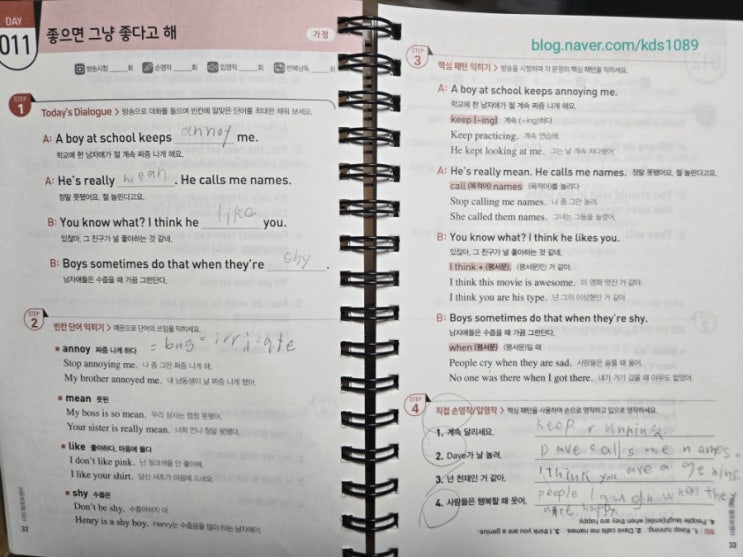 DAY
011
좋으면 그냥 좋다고 해
가정
방송시청 ___회
손영작 ___회
입영작 ___회
반복낭독 ___회
STEP 1
Today's Dialogue > 방송으로 대화를 들으며 빈칸에 알맞은 단어를 최대한 채워 보세요.
A: A boy at school keeps annoy me.
학교에 한 남자애가 절 계속 짜증 나게 해요.
A: He's really mean. He calls me names.
정말 못됐어요, 절 놀린다고요.
B: You know what? I think he like you.
있잖아, 그 친구가 널 좋아하는 것 같네.
B: Boys sometimes do that when they're shy.
남자애들은 수줍을 때 가끔 그런단다.
STEP 2
빈칸 단어 익히기 > 예문으로 단어의 쓰임을 익히세요.
annoy 짜증 나게 하다 = bug =
Stop annoying me. 나 좀 그만 짜증 나게 해.
My brother annoyed me. 내 남동생이 날 짜증 나게 했어.
mean 못된
My boss is so mean. 우리 상사는 엄청 못됐어.
Your sister is really mean. 너희 언니 정말 못됐다.
like 좋아하다, 마음에 들다
I don't like pink. 난 핑크색을 안 좋아해.
I like your shirt. 당신 셔츠가 마음에 드네요.
shy 수줍은
Don't be shy. 수줍어하지 마.
Henry is a shy boy. Henry는 수줍음을 많이 타는 남자애야.
32
blog.naver.com/kds1089
STEP 3
핵심 패턴 익히기 > 방송을 시청하며 각 문장의 핵심 패턴을 익히세요.
A: A boy at school keeps annoying me.
학교에 한 남자애가 절 계속 짜증 나게 해요.
keep (~ing) 계속 (~ing)하다
Keep practicing. 계속 연습해.
He kept looking at me. 그는 날 계속 쳐다봤어.
A: He's really mean. He calls me names. 정말 못됐어요, 절 놀린다고요.
call (목적어) names (목적어)를 놀리다
Stop calling me names. 나 좀 그만 놀려.
She called them names. 그녀는 그들을 놀렸어.
B: You know what? I think he likes you.
있잖아, 그 친구가 널 좋아하는 것 같네.
I think + (평서문). (평서문)인 거 같아.
I think this movie is awesome. 이 영화 멋진 거 같아.
I think you are his type. 넌 그의 이상형인 거 같아.
B: Boys sometimes do that when they're shy.
남자애들은 수줍을 때 가끔 그런단다.
when (평서문) (평서문)일 때
People cry when they are sad. 사람들은 슬플 때 울어.
No one was there when I got there. 내가 거기 갔을 때 아무도 없었어.
STEP 4
직접 손영작/입영작 > 핵심 패턴을 사용하여 손으로 영작하고 입으로 영작하세요.
1. 계속 달리세요. keep running.
2. Dave가 날 놀려. Dave calls me names.
3. 넌 천재인 거 같아. I think you are a genius.
4. 사람들은 행복할 때 웃어. people laugh when the
are happy
정답 1. Keep running. 2. Dave calls me names. 3. I think you are a genius.
4. People laugh(smile) when they are happy.
33